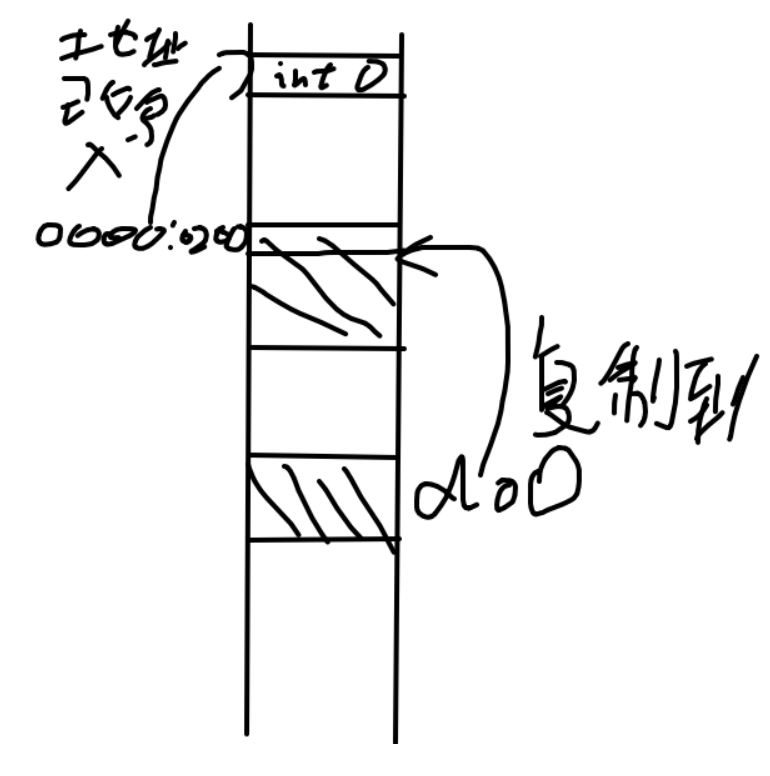 地址
记录
入
int 0
0000:0200
复制到
do0